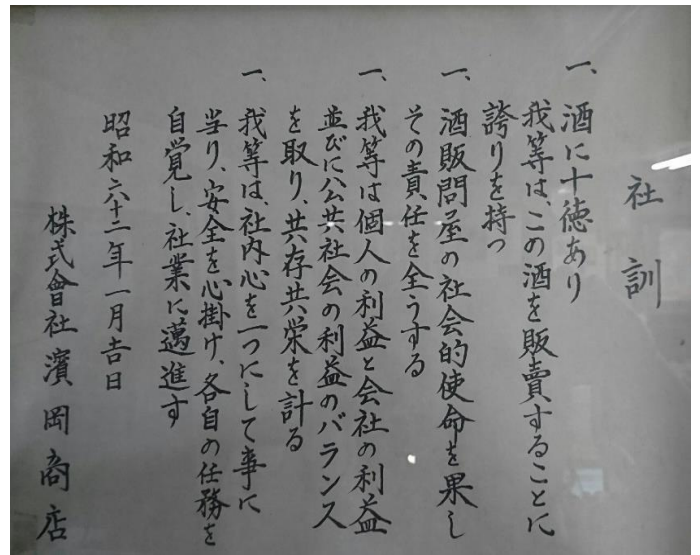 社訓
一、酒に十徳あり
我等は、この酒を販賣することに
誇りを持つ
一、酒販問屋の社会的使命を果し
その責任を全うする
一、我等は個人の利益と会社の利益
並びに公共社会の利益のバランス
を取り、共存共栄を計る
一、我等は、社内心を一つにして事に
当り、安全を心掛け、各自の任務を
自覚し、社業に邁進す
昭和六十二年一月吉日
株式會社濱岡商店